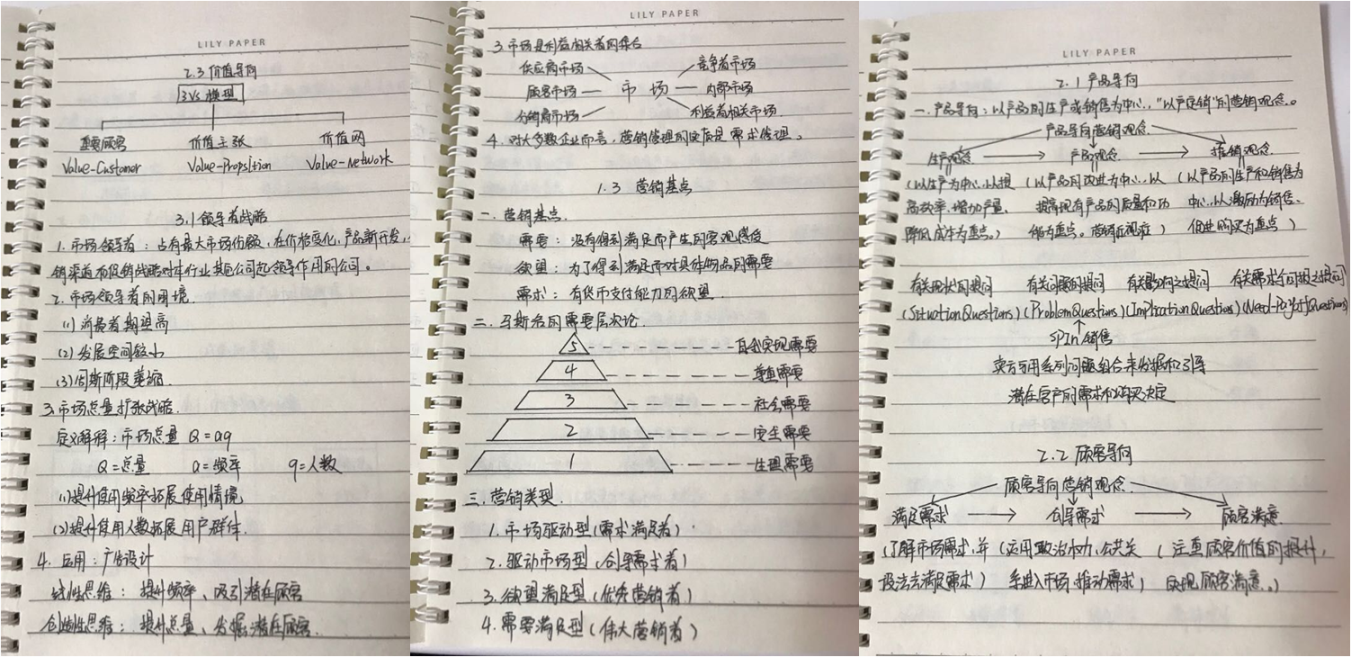 LILY PAPER
2.3 价值导向
3Vs 模型
重要顾客 价值主张 价值网
Value-Customer Value-Propsition Value-Network
3.1 领导者战略
1. 市场领导者：占有最大市场份额，在价格变化，产品新开发，
销渠道和促销战略对本行业其他公司起领导作用的公司。
2. 市场领导者的困境
(1) 消费者期望高
(2) 发展空间较小
(3) 创新阶段萎缩
3. 市场总量扩张战略
定义解释：市场总量 Q=aq
Q=总量 a=频率 q=人数
(1) 提升使用频率拓展使用情境
(2) 提升使用人数拓展用户群体
4. 应用：广告设计
线性思维：提升频率、吸引潜在顾客
创造性思维：提升总量、发掘潜在顾客
LILY PAPER
3. 市场是利益相关者的集合
供应商市场 竞争者市场
顾客市场 市场 内部市场
分销商市场 利益者相关市场
4. 对大多数企业而言，营销管理的实质是需求管理。
1.3 营销基点
一. 营销基点
需要：没有得到满足而产生的客观感受
欲望：为了得到满足而对具体物品的需要
需求：有货币支付能力的欲望
二. 马斯洛的需要层次论
5 自我实现需要
4 尊重需要
3 社会需要
2 安全需要
1 生理需要
三. 营销类型
1. 市场驱动型（需求满足者）
2. 驱动市场型（创导需求者）
3. 欲望满足型（优秀营销者）
4. 需要满足型（伟大营销者）
LILY PAPER
2.1 产品导向
一. 产品导向：以产品的生产或销售为中心，“以产促销”的营销观点。
产品导向营销观念
生产观念 产品观念 推销观念
（以生产为中心，以提 （以产品的改进为中心，以 （以产品的生产和销售为
高效率，增加产量、 提高现有产品的质量和功 中心，以激励为销售、
降低成本为重点。） 能为重点。营销近视症） 促进购买为重点）
有关现状的提问 有关问题的提问 有关影响之提问 有关需求与回报之提问
(Situation Questions) (Problem Questions) (Implication Questions) (Need-Payoff Questions)
SPIN 销售
卖方专用系列问题组合来发掘和引导
潜在客户的需求和购买决定
2.2 顾客导向
顾客导向营销观念
满足需求 创导需求 顾客满意
（了解市场需求，并 （运用政治权力、公共关 （注重顾客价值的提升，
设法去满足需求） 系进入市场，推动需求） 实现顾客满意。）